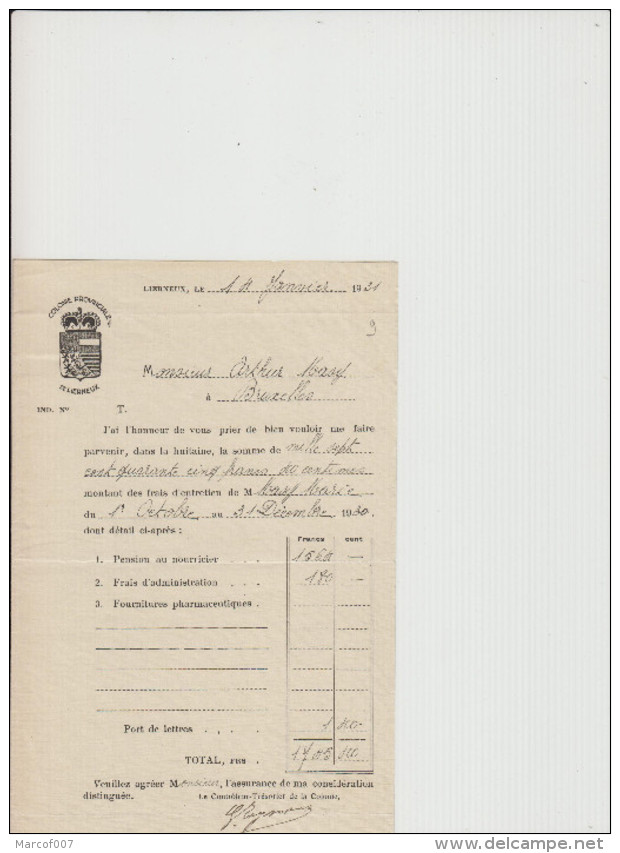 LIERNEUX, LE 14 Janvier 1931
COLONIE PROVINCIALE
DE LIERNEUX
Monsieur Arthur Masy
à Bruxelles
IND. No T.
J'ai l'honneur de vous prier de bien vouloir me faire
parvenir, dans la huitaine, la somme de mille sept
cent quarante cinq francs centimes
montant des frais d'entretien de M Masy Marie
du 1r Octobre au 31 Décembre 1930.
dont détail ci-après :
Francs cent
1. Pension au nourricier . . . 1560 —
2. Frais d'administration . . . —
3. Fournitures pharmaceutiques .
Port de lettres . . . .
TOTAL, FRS .
Veuillez agréer Monsieur, l'assurance de ma considération
distinguée. Le Contrôleur-Trésorier de la Colonie,
Marcof007
www.delcampe.net